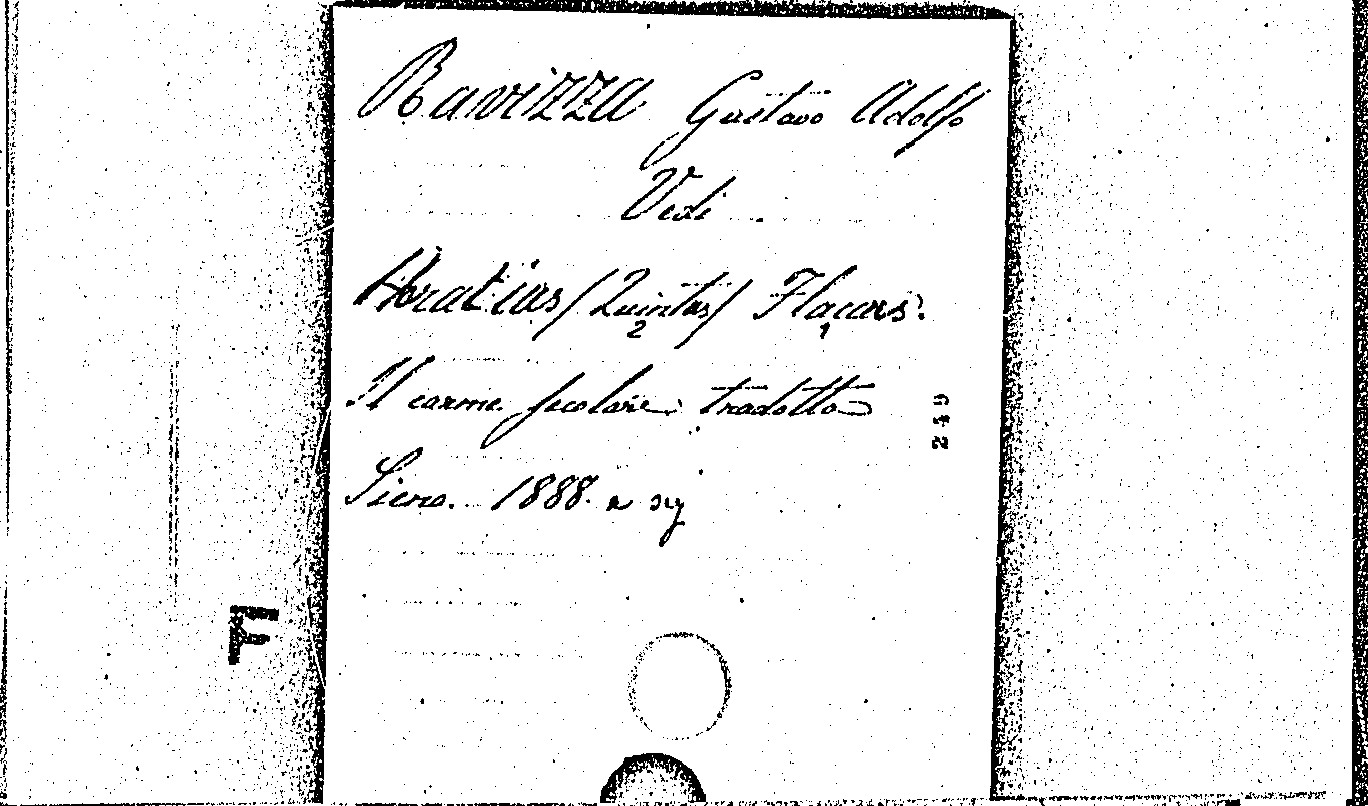 Ravizza Gustavo Adolfo
Vedi
Horatius (Quintus) Flaccus.
2 1
Il carme secolare tradotto
Siena. 1888.
249
F